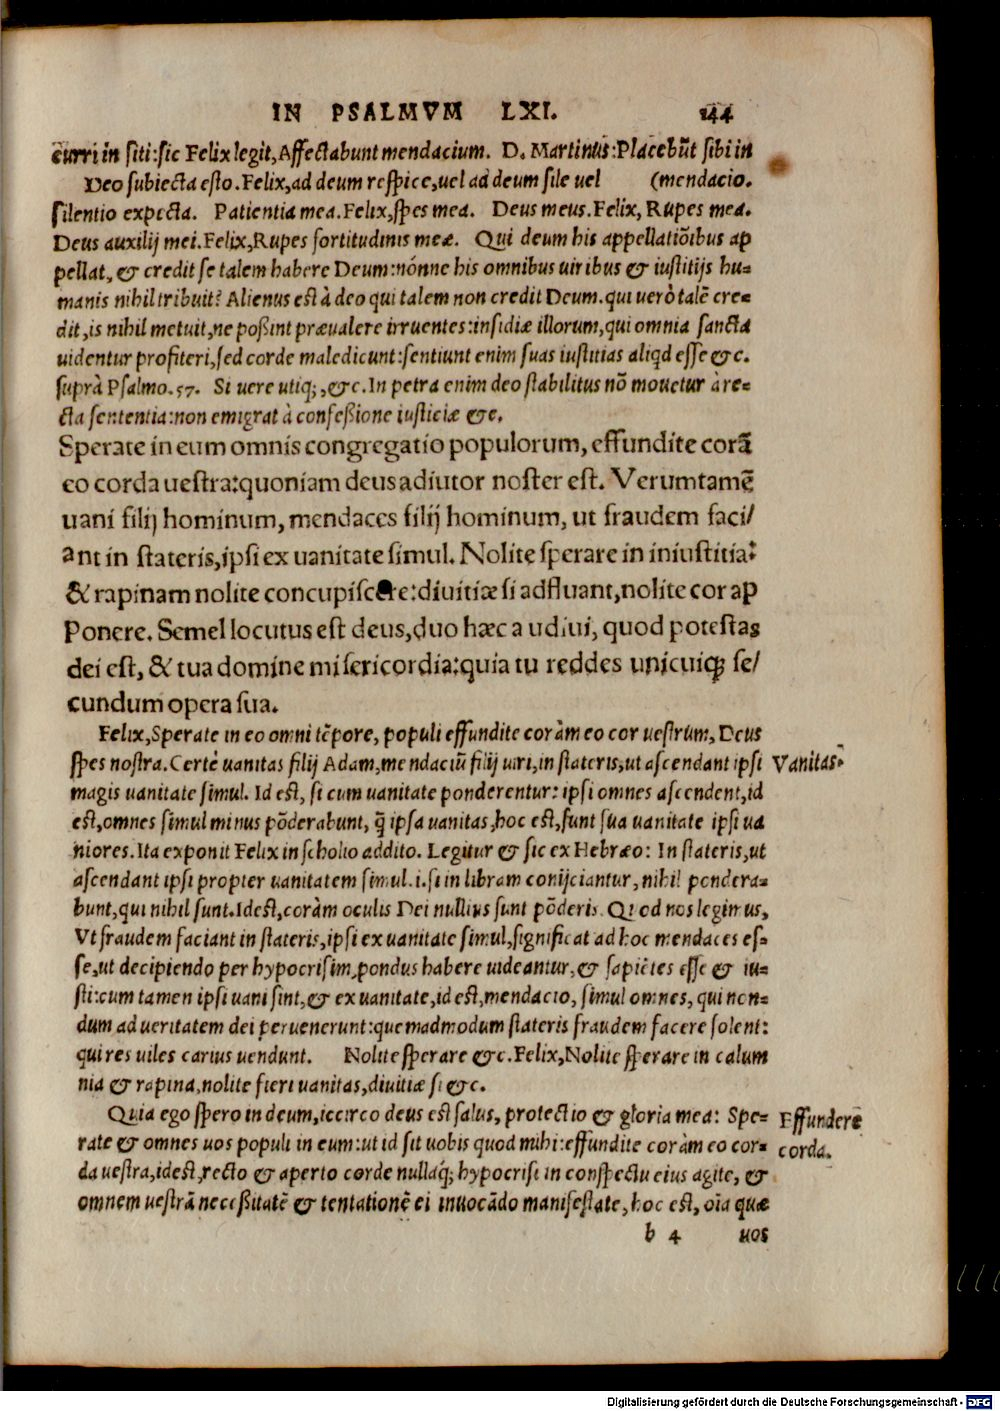 IN PSALMVM LXI. 144
curri in siti:sic Felix legit,Affectabunt mendacium. D. Martinus:Placebūt sibi in
Deo subiecta esto.Felix,ad deum respice,uel ad deum sile uel (mendacio.
silentio expecta. Patientia mea.Felix,spes mea. Deus meus.Felix, Rupes mea.
Deus auxilij mei.Felix,Rupes fortitudinis meæ. Qui deum his appellatiōibus ap
pellat, & credit se talem habere Deum:nónne his omnibus uiribus & iustitijs hu=
manis nihil tribuit? Alienus est à deo qui talem non credit Deum.qui uerò talē cre=
dit,is nihil metuit,ne poßint præualere irruentes:insidiæ illorum,qui omnia sancta
uidentur profiteri,sed corde maledicunt:sentiunt enim suas iustitias aliqd esse &c.
suprà Psalmo.57. Si uere utiq;,&c.In petra enim deo stabilitus nō mouetur à re=
cta sententia:non emigrat à confeßione iusticiæ &c.
Sperate in eum omnis congregatio populorum, effundite corā
eo corda uestra:quoniam deus adiutor noster est. Verumtamē
uani filij hominum, mendaces filij hominum, ut fraudem faci/
ant in stateris,ipsi ex uanitate simul. Nolite sperare in iniustitia:
& rapinam nolite concupiscere:diuitiæ si adfluant,nolite cor ap
ponere. Semel locutus est deus,duo hæc audiui, quod potestas
dei est, & tua domine misericordia:quia tu reddes unicuiq; se/
cundum opera sua.
Felix,Sperate in eo omni tēpore, populi effundite coràm eo cor uestrum, Deus
spes nostra.Certè uanitas filij Adam,mendaciū filij uiri,in stateris,ut ascendant ipsi Vanitas.
magis uanitate simul. Id est, si cum uanitate ponderentur: ipsi omnes ascendent,id
est,omnes simul minus pōderabunt, q̄ ipsa uanitas,hoc est,sunt sua uanitate ipsi ua
niores.Ita exponit Felix in scholio addito. Legitur & sic ex Hebræo: In stateris,ut
ascendant ipsi propter uanitatem simul.i.si in libram conijciantur, nihil pondera=
bunt,qui nihil sunt.Idest,coràm oculis Dei nullius sunt pōderis. Quod nos legimus,
Vt fraudem faciant in stateris,ipsi ex uanitate simul,significat ad hoc mendaces es=
se,ut decipiendo per hypocrisim,pondus habere uideantur,& sapiētes esse & iu=
sti:cum tamen ipsi uani sint,& ex uanitate,id est,mendacio, simul omnes, qui non=
dum ad ueritatem dei peruenerunt:quemadmodum stateris fraudem facere solent:
qui res uiles carius uendunt. Nolite sperare &c.Felix,Nolite sperare in calum
nia & rapina,nolite fieri uanitas,diuitiæ si &c.
Quia ego spero in deum,iccirco deus est salus, protectio & gloria mea: Spe= Effundere
rate & omnes uos populi in eum:ut id sit uobis quod mihi:effundite coràm eo cor= corda.
da uestra,idest,recto & aperto corde nullaq; hypocrisi in conspectu eius agite, &
omnem uestrā neceßitatē & tentationē ei inuocādo manifestate, hoc est, oīa quæ
b 4 uos
Digitalisierung gefördert durch die Deutsche Forschungsgemeinschaft - DFG